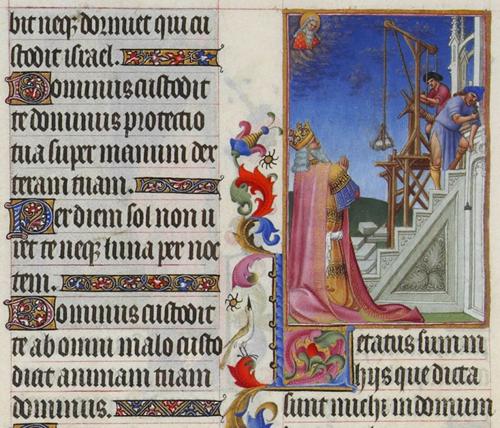 bit neq; dormiet qui cu
stodit israel.
Dominus custodit
te dominus protectio
tua super manum dex
teram tuam.
Per diem sol non u
ret te neq; luna per noc
tem.
Dominus custodit
te ab omni malo custo
diat animam tuam
dominus.
Letatus sum in
hijs que dicta
sunt michi in domum